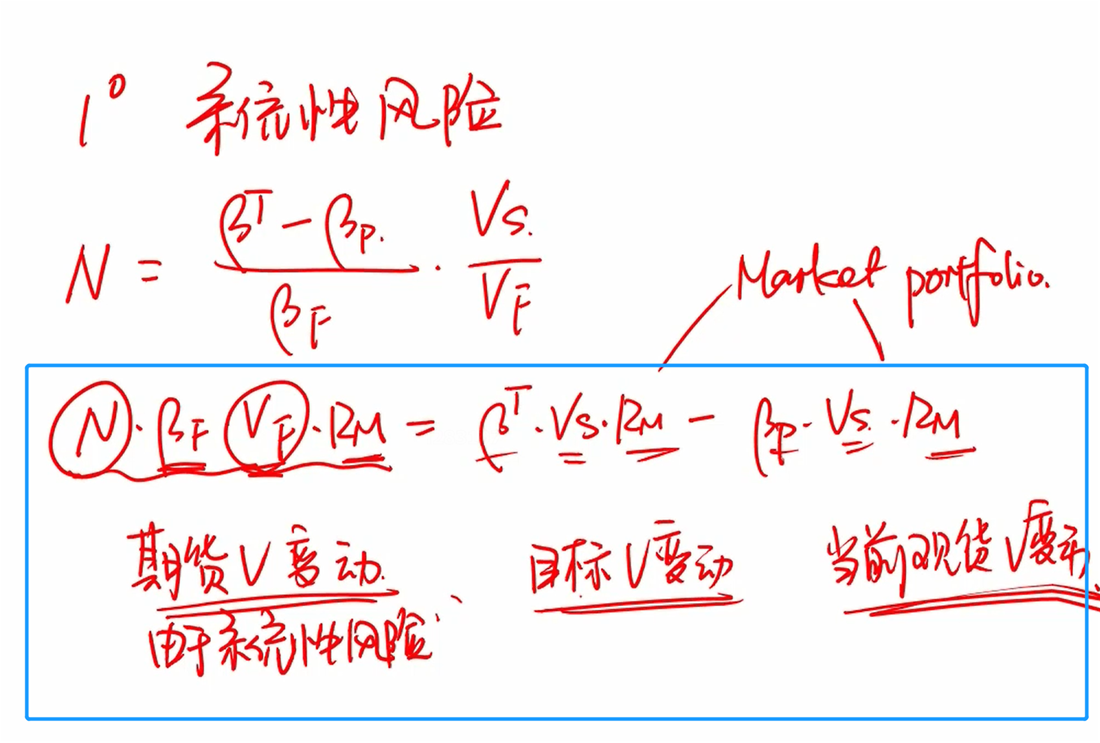 1° 系统性风险
N = (β^T − βP.)/βF · VS./VF
Market portfolio.
N · βF VF · RM = β^T · VS · RM − βP · VS · RM
期货V变动. 目标V变动 当前现货V变动
由于系统性风险